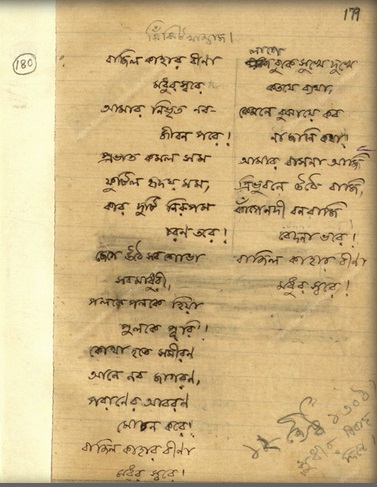 179
180
ঝিঁঝিট খাম্বাজ।
বাজিল কাহার বীণা
মধুর স্বরে
আমার নিভৃত নব-
জীবন পরে!
প্রভাত কমল সম
ফুটিল হৃদয় মম,
কার দুটি নিরুপম
চরণ তরে!
জেগে উঠে সব শোভা
সব মাধুরী,
পলকে পলকে হিয়া
পুলকে পূরি!
কোথা হতে সমীরণ
আনে নব জাগরণ,
পরাণের আবরণ
মোচন করে!
বাজিল কাহার বীণা
মধুর স্বরে!
লাগে
বুকে সুখে দুখে
কতযে ব্যথা,
কেমনে বুঝায়ে কব
না জানি কথা!
আমার বাসনা আজি
ত্রিভুবনে উঠে বাজি,
কাঁপে নদী বনরাজি
বেদনা ভরে!
বাজিল কাহার বীণা
মধুর স্বরে!